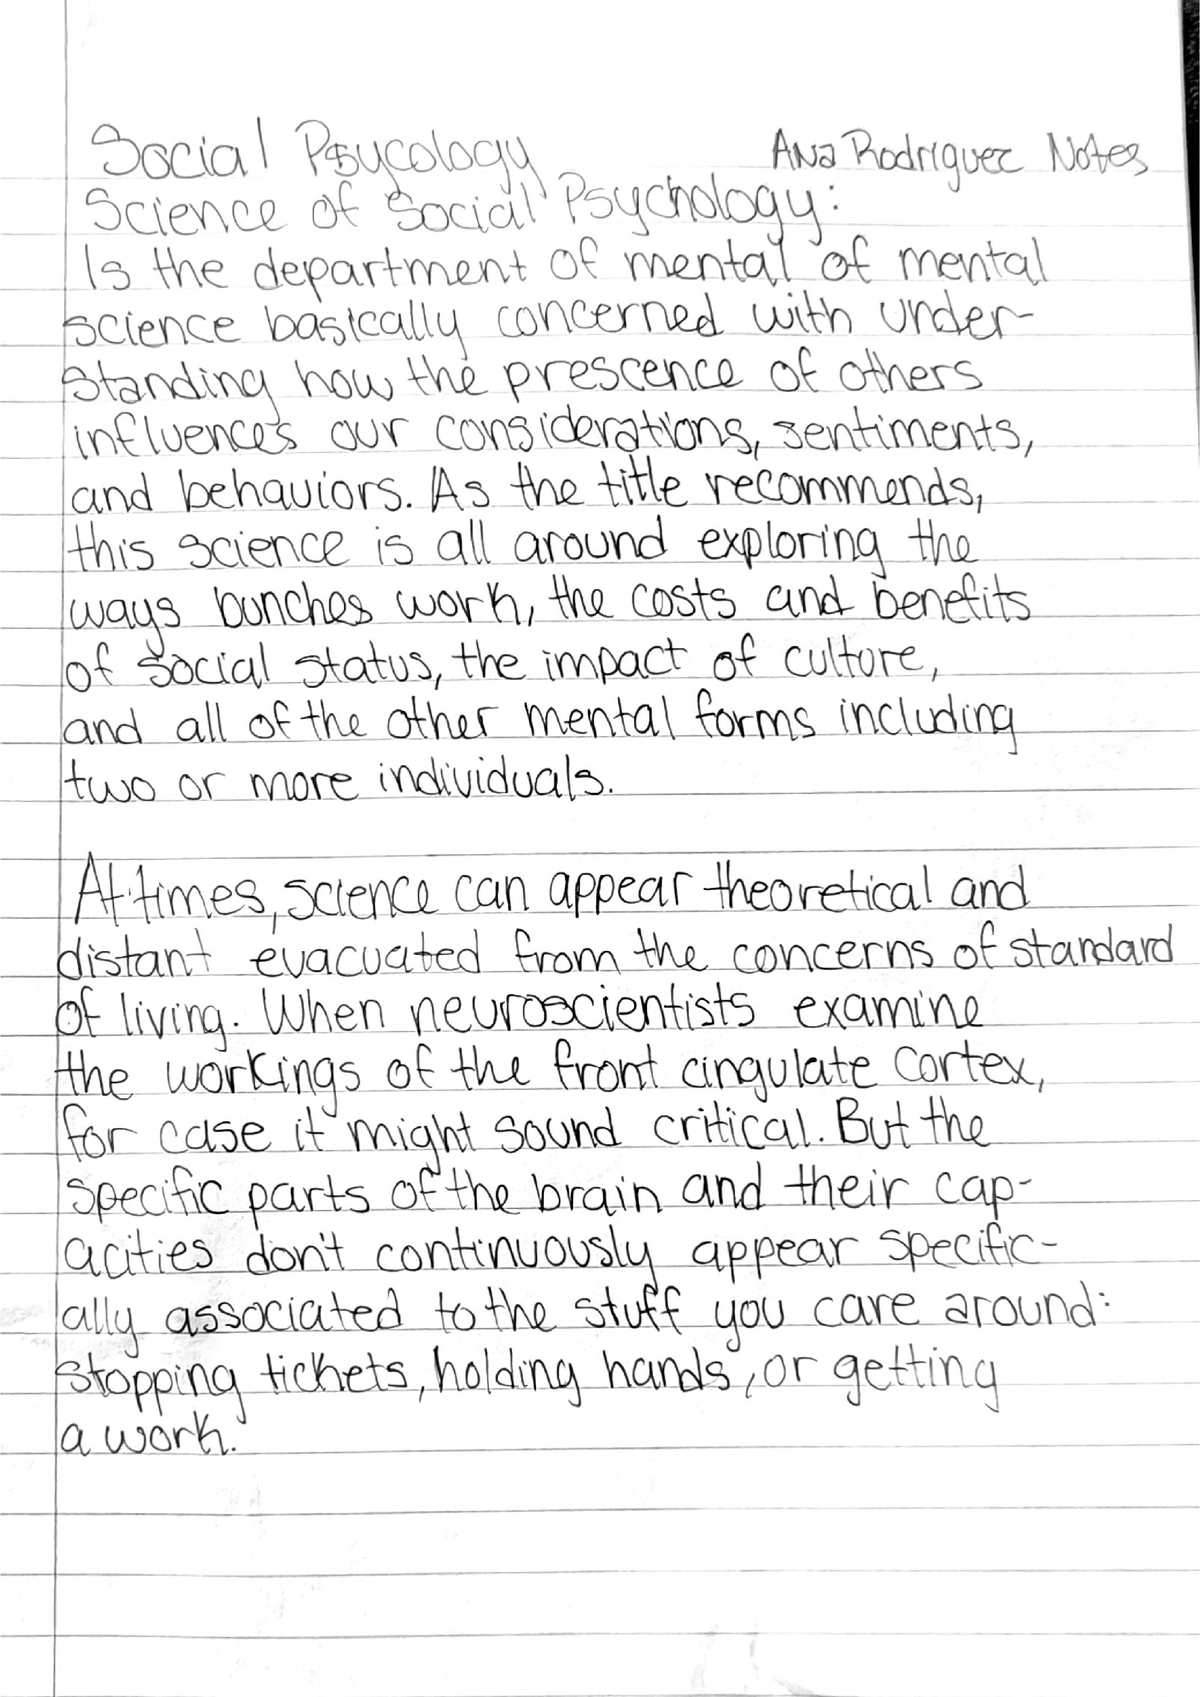 Social Psycology
Ana Rodriguez Notes
Science of Social Psychology:
Is the department of mental of mental
science basically concerned with under-
standing how the prescence of others
influences our considerations, sentiments,
and behaviors. As the title recommends,
this science is all around exploring the
ways bunches work, the costs and benefits
of social status, the impact of culture,
and all of the other mental forms including
two or more individuals.
At times, science can appear theoretical and
distant evacuated from the concerns of standard
of living. When neuroscientists examine
the workings of the front cingulate cortex,
for case it might sound critical. But the
specific parts of the brain and their cap-
acities don't continuously appear specific-
ally associated to the stuff you care around:
stopping tickets, holding hands, or getting
a work.